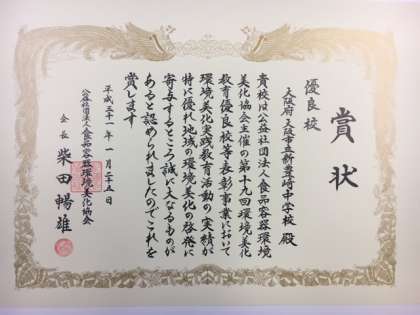 賞状
優良校
大阪府 大阪市立新豊崎中学校 殿
貴校は公益社団法人食品容器環境
美化協会主催の第十九回環境美化
教育優良校等表彰事業において
環境美化実践教育活動の実績が
特に優れ地域の環境美化の啓発に
寄与するところ誠に大なるものが
あると認められましたのでこれを
賞します
平成三十一年一月二十五日
公益社団法人食品容器環境美化協会
会長 柴田暢雄